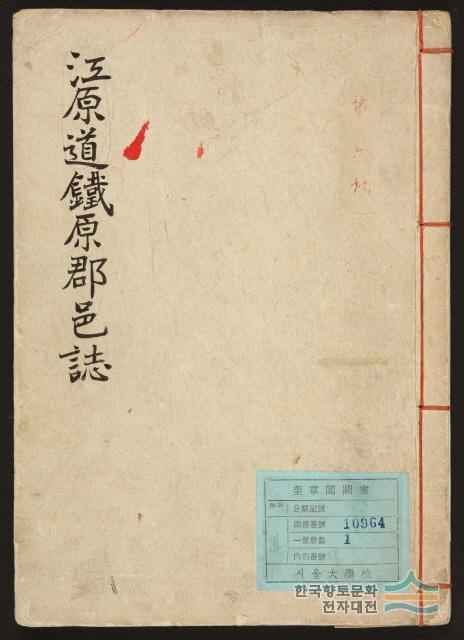 江原道鐵原郡邑誌
奎章閣圖書
分類記號
圖書番號 10964
一部冊數 1
內別番號
서울大學校
한국향토문화
전자대전